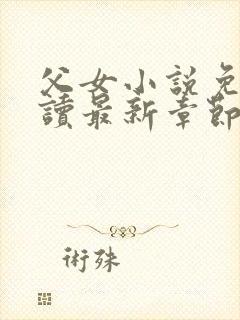 父女小說免
讀最新章節
術殊